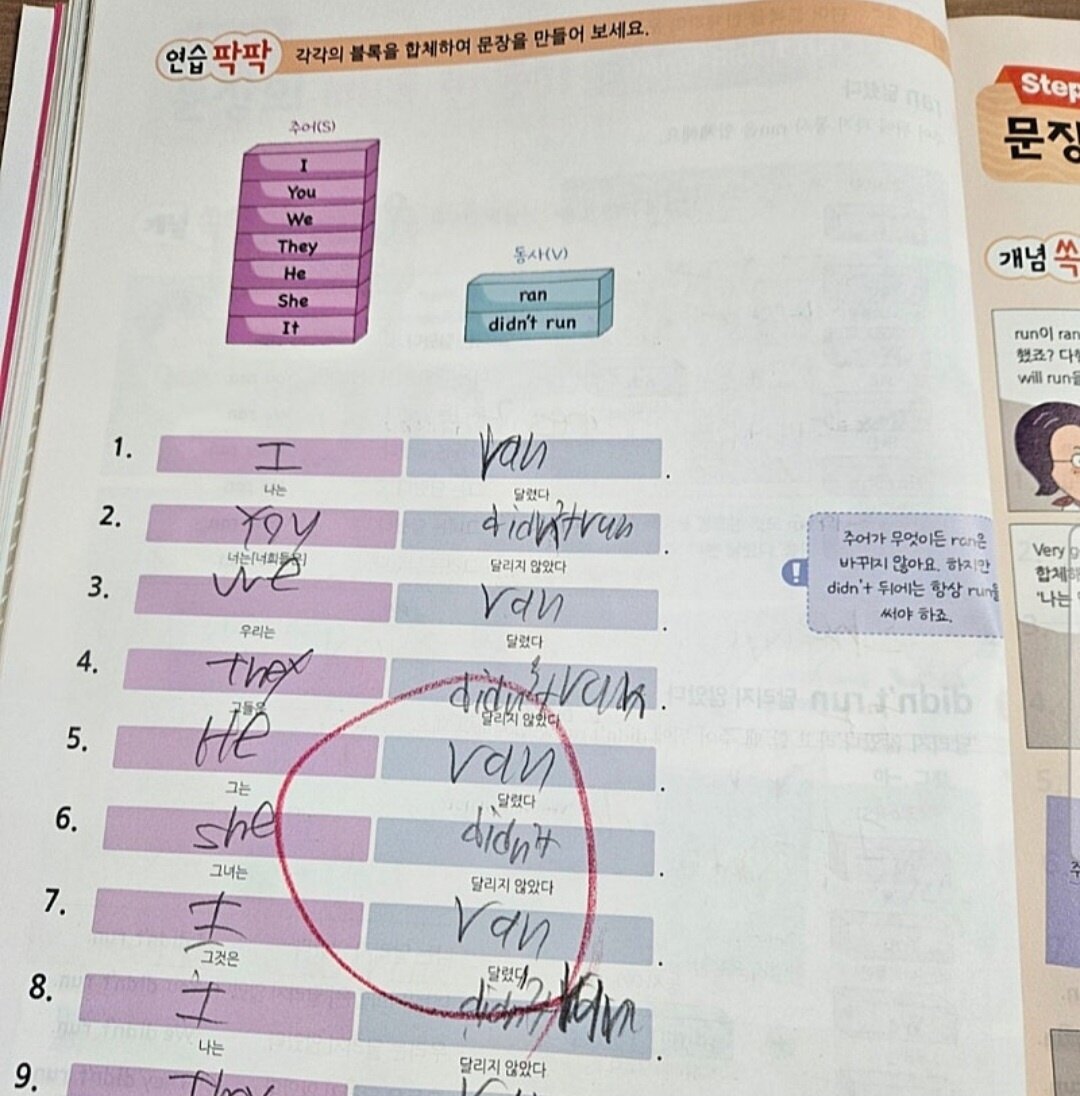 연습 팍팍 각각의 블록을 합체하여 문장을 만들어 보세요.
주어(S)
I
You
We
They
He
She
It
동사(V)
ran
didn't run
1. I ran.
나는 달렸다
2. You didn't run.
너는[너희들은] 달리지 않았다
3. We ran.
우리는 달렸다
4. They didn't run.
그들은 달리지 않았다
5. He ran.
그는 달렸다
6. She didn't.
그녀는 달리지 않았다
7. I ran.
그것은 달렸다
8. I didn't
나는 달리지 않았다
9. They
주어가 무엇이든 ran은
바뀌지 않아요. 하지만
didn't 뒤에는 항상 run을
써야 하죠.
Step
개념 쏙
run이 ran
했죠?
will run을
Very
합체해
'나는